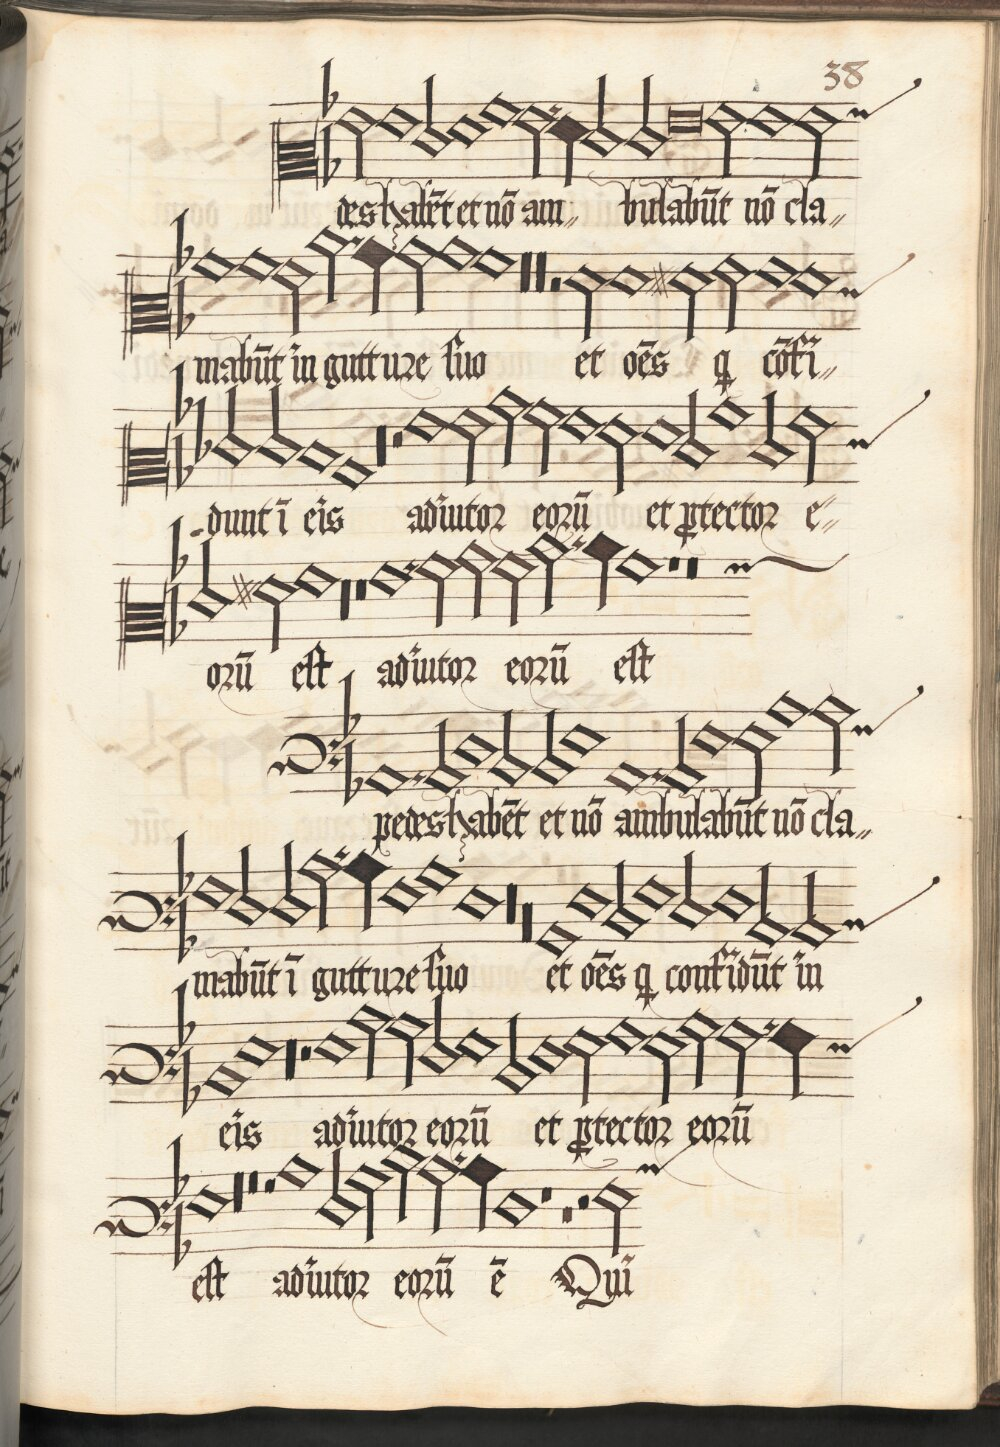 38
des habēt et nō am〃 bulabūt nō cla〃
mabūt in gutture suo et oēs q cōfi〃
dunt ī eis adiutor eorū et ꝓtector e〃
orū est adiutor eorū est
pedes habēt et nō ambulabūt nō cla〃
mabūt ī gutture suo et oēs q confidūt in
eis adiutor eorū et ꝓtector eorū
est adiutor eorū ē Qui